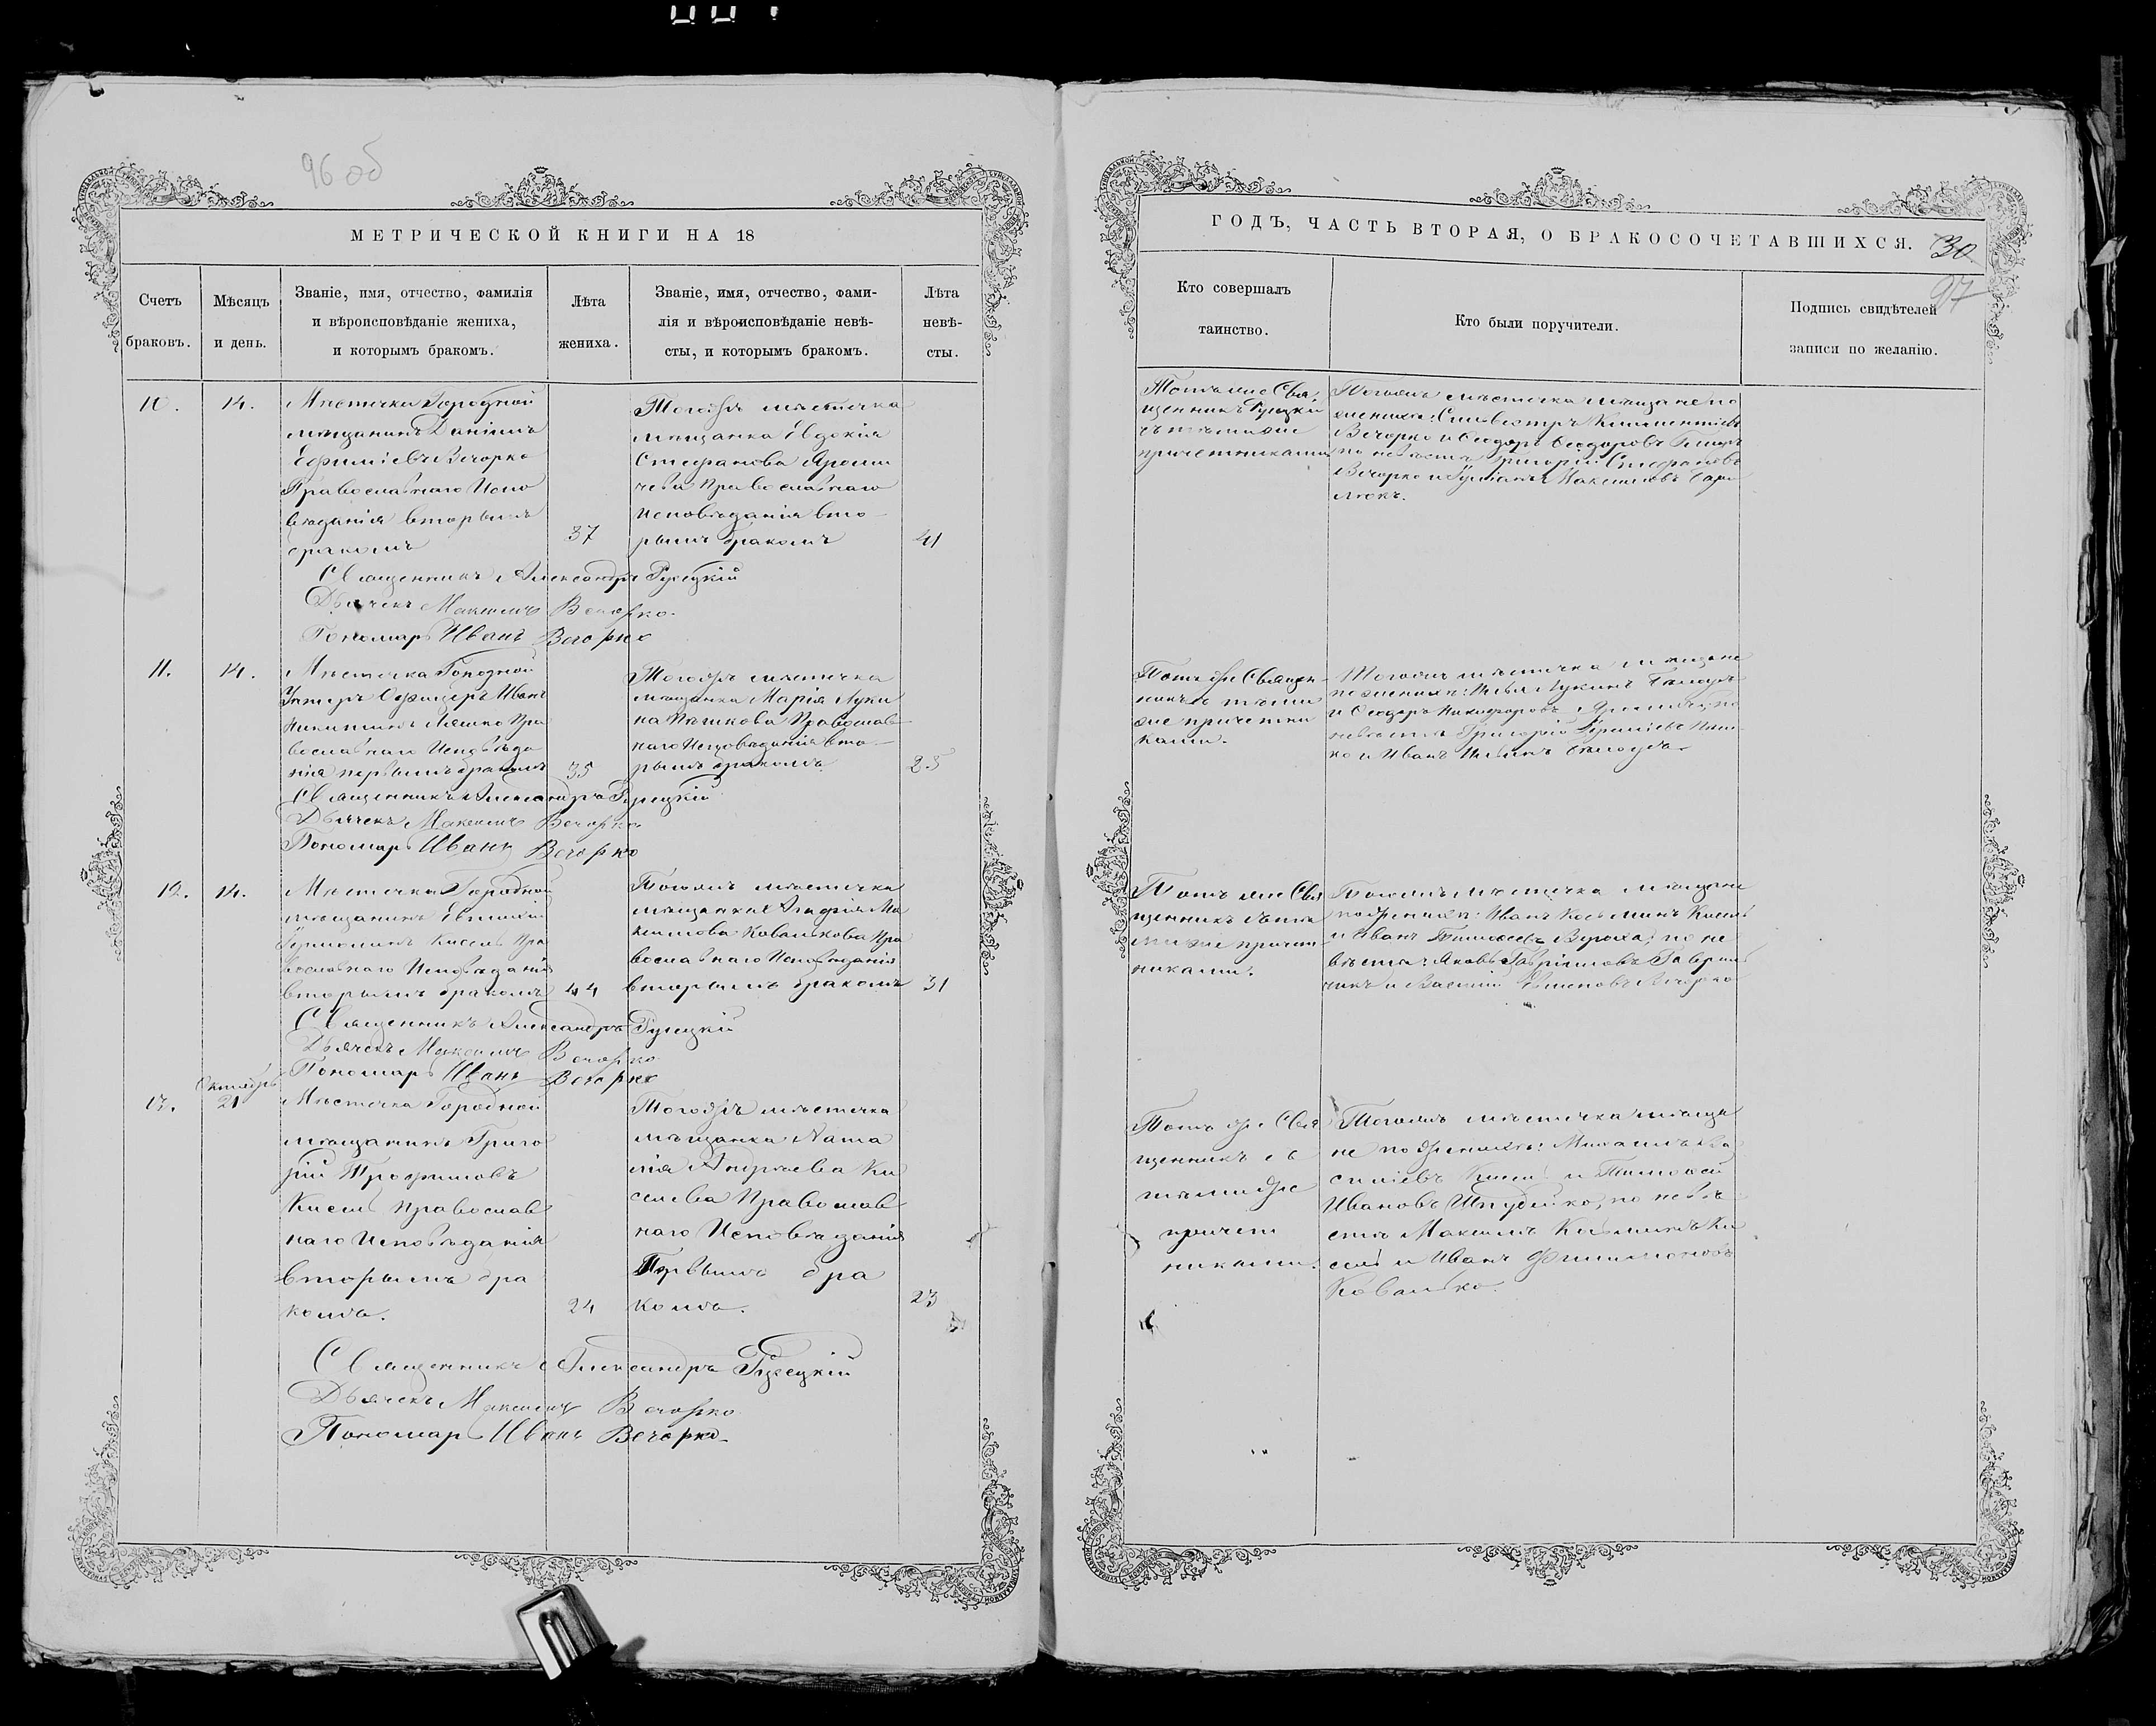 96 об
МЕТРИЧЕСКОЙ КНИГИ НА 18
Счетъ
браковъ.
Мѣсяцъ
и день.
Званіе, имя, отчество, фамилія
и вѣроисповѣданіе жениха,
и которымъ бракомъ.
Лѣта
жениха.
Званіе, имя, отчество, фами-
лія и вѣроисповѣданіе невѣ-
сты, и которымъ бракомъ.
Лѣта
невѣ-
сты.
10.
14.
Мѣстечка Городной
мѣщанинъ Даніилъ
Ефиміевъ Вечорко
Православнаго Испо
вѣданія вторымъ
бракомъ
37
Тогожъ мѣстечка
мѣщанка Евдокія
Стефанова
Православнаго
Исповѣданія вто-
рымъ бракомъ
41
Священникъ Александръ
Дьячекъ Максимъ Вечорко.
Пономарь Иванъ Вечорко
11.
14.
Мѣстечка Городной
Унтеръ Офицеръ Иванъ
Никитинъ Ляшко Пра
вославнаго Исповѣда
нія первымъ бракомъ
35
Тогожъ мѣстечка
мѣщанка Марія Луки
на Православ-
наго Исповѣданія вто-
рымъ бракомъ.
25
Священникъ Александръ
Дьячекъ Максимъ Вечорко.
Пономарь Иванъ Вечорко
12.
14.
Мѣстечка Городной
мѣщанинъ
Кисель Пра
вославнаго Исповѣданія
вторымъ бракомъ
44
Тогожъ мѣстечка
мѣщанка Агафія Ма
ксимова Ковалькова Пра
вославнаго Исповѣданія
вторымъ бракомъ
31
Священникъ Александръ
Дьячекъ Максимъ Вечорко
Пономарь Иванъ Вечорко
13.
Октябрь
21
Мѣстечка Городной
мѣщанинъ Григо
рій Трофимовъ
Кисель Православ
наго Исповѣданія
вторымъ бра
комъ.
24
Тогожъ мѣстечка
мѣщанка Ната
лія Андреева Ки
селева Православ
наго Исповѣданія
Первымъ бра
комъ.
23
Священникъ Александръ
Дьячекъ Максимъ Вечорко
Пономарь Иванъ Вечорко
ГОДЪ, ЧАСТЬ ВТОРАЯ, О БРАКОСОЧЕТАВШИХСЯ.
30
97
Кто совершалъ
таинство.
Кто были поручители.
Подпись свидѣтелей
записи по желанію.
Тотъ же Свя-
щенникъ
съ тѣми же
причетниками
Тогожъ мѣстечка мѣщане по
женихѣ: Сильвестръ Климентіевъ
Вечорко и Ѳеодоръ Ѳеодоровъ
по невѣстѣ Григорій Стефановъ
Вечорко и Максимовъ
Тотъ же Священ-
никъ съ тѣми
же причетни
ками.
Тогожъ мѣстечка мѣщане
по женихѣ: Илья Лукинъ
и Ѳеодоръ Никифоровъ по
невѣстѣ Григорій
и Иванъ Ильинъ
Тотъ же Свя
щенникъ съ тѣ
ми же причет
никами.
Тогожъ мѣстечка мѣщане
по женихѣ: Иванъ Косьминъ Кисель
и Иванъ по не
вѣстѣ: Яковъ Гавріиловъ Гаврил
чикъ и Василій Вечорко
Тотъ же Свя
щенникъ съ
тѣми же
причет
никами.
Тогожъ мѣстечка мѣща
не по женихѣ: Михаилъ Ва
силіевъ Кисель и Тимоѳей
Ивановъ Шпудейко, по невѣ
стѣ Максимъ Косьминъ Ки
сель и Иванъ Филимоновъ
Ковалько.